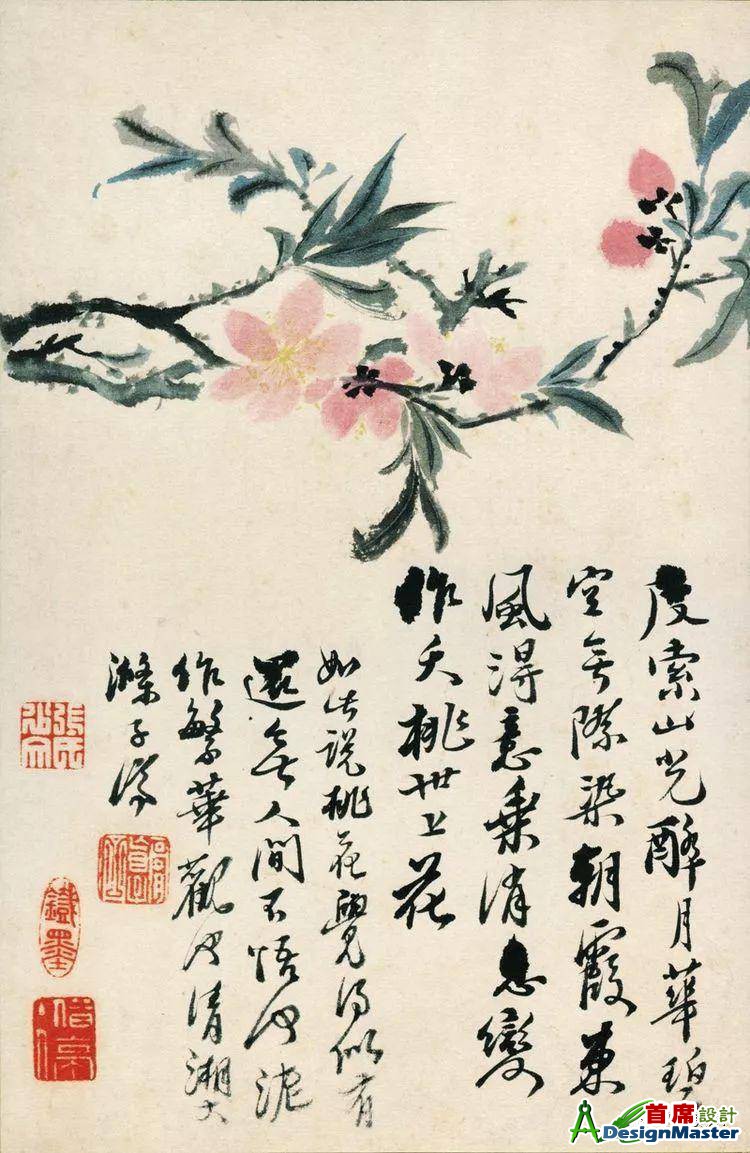 度索山光醉月華碧
空無際染朝霞東
風得意乘消息變
作夭桃世上花
如此說桃花覺得似有
還無人間不悟何泥
作繁華觀也清湘大
滌子濟
鐵墨
首席設計
ADesignMaster